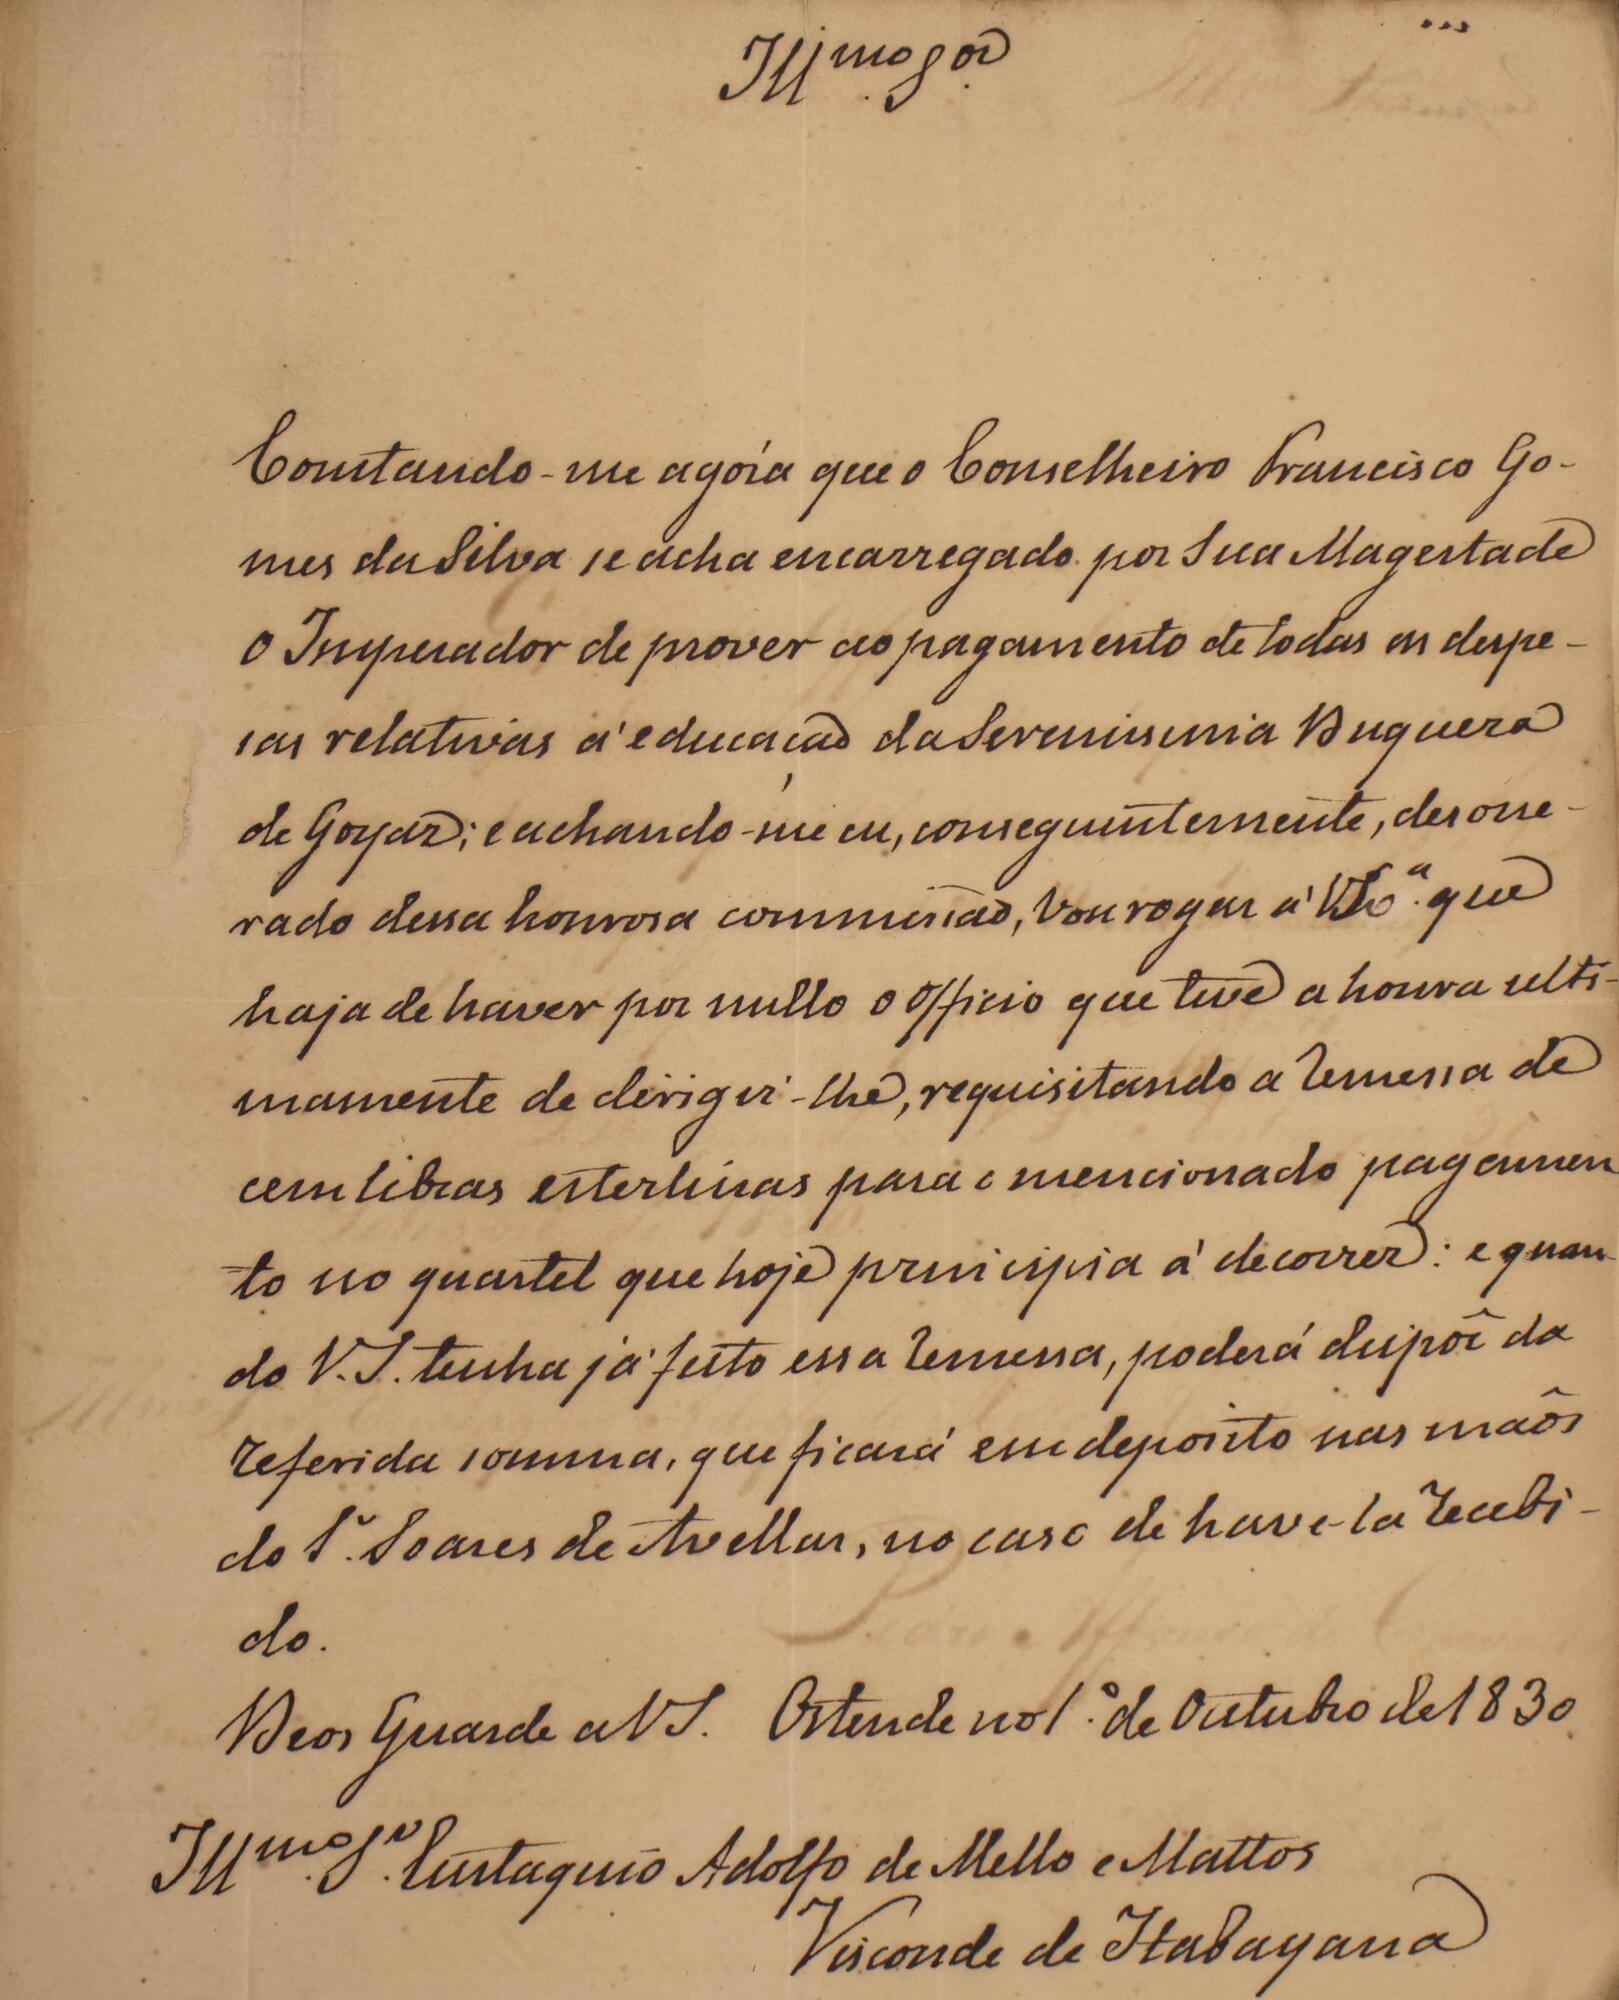 Ill.mo Sor.
Constando-me agóra que o Conselheiro Francisco Go-
mes da Silva se acha encarregado por Sua Magestade
O Imperador de prover ao pagamento de todas as despe-
sas relativas á educacaõ da Serenissima Duqueza
de Goyaz; e achando-me eu, conseguintemente, desone-
rado dessa honrosa commissaõ, vou rogar á que
haja de haver por nullo o officio que tive a honra ulti-
mamente de dirigir-lhe, requisitando a remessa de
cem libras esterlinas para o mencionado pagamen
to no quartel que hoje principia á decorrer: e quan-
do V.S. tenha já feito essa remessa, poderá dispôr da
referida somma, que ficará em deposito nas maõs
do Sr. Soares de Avellar, no caso de have-la recebi-
do.
Deos Guarde a VS. Ostende no 1.º de Outubro de 1830
Ill.mo Sr. Eustaquio Adolfo de Mello e Mattos
Visconde de Itabayana